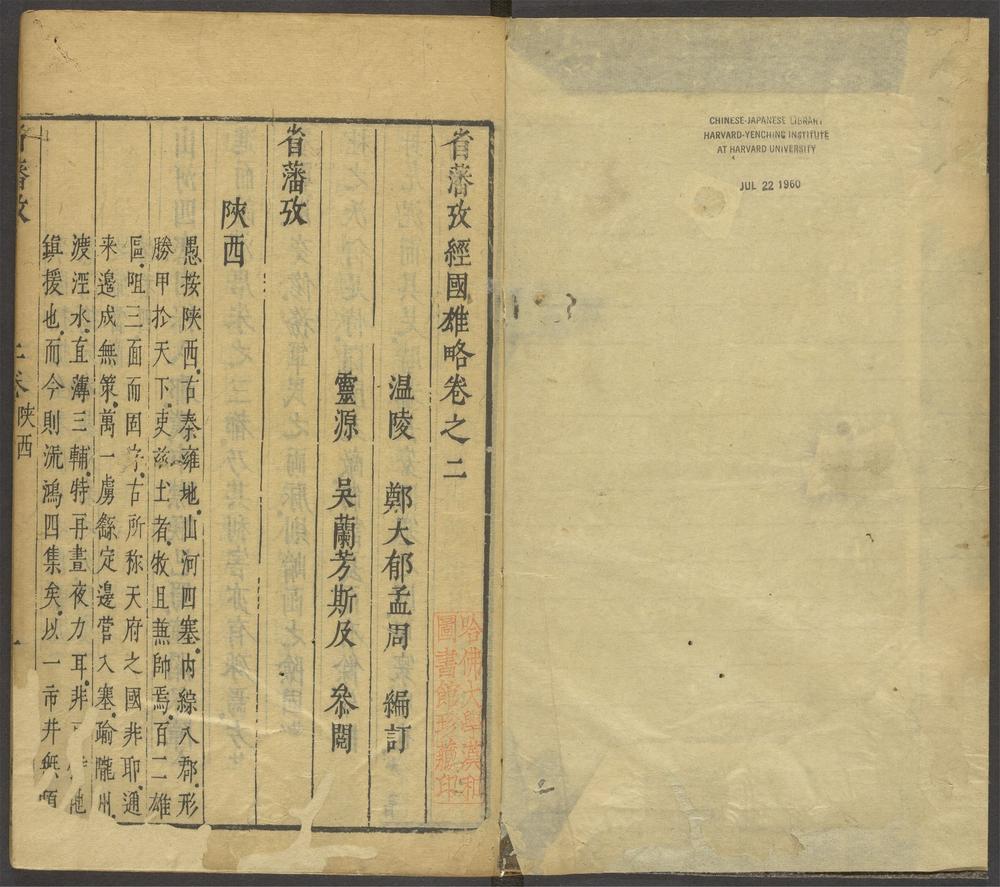 CHINESE-JAPANESE LIBRARY
HARVARD-YENCHING INSTITUTE
AT HARVARD UNIVERSITY
JUL 22 1960
2
哈佛大學漢和
圖書館珍藏印
省藩攷經國雄略卷之二
温陵 鄭大郁孟周 編訂
靈源 吳蘭芳斯及 叅閱
省藩攷
陜西
愚按陜西古秦雍地山河四塞内綜八郡形
勝甲扵天下吏兹土者牧且無帥焉百二雄
區咀三面而固守古所称天府之國非耶通
来邊成無策萬一虜繇定邊营入塞瑜隴州
渡涇水直薄三輔特再晝夜力耳非
鎮援也而今則流鴻四集矣以一市井無頼
省藩攷 二卷 陜西 一